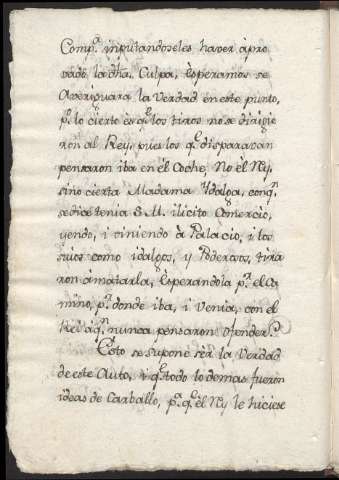 Comp.ª inputandoseles haver apro
vado la dha. Culpa, Esperamos se
Averiguara la Verdad en este punto,
p.º lo cierto es q.e los tiros no se dirigie
ron al Rey, pues los q.e disparavan
pensaron iba en él Coche, No él Rey,
sino cierta Madama Ydalga, con q.n
se dice tenia S. M. ilicito Comercio,
yendo, i viniendo à Palacio, i los
suios como idalgos, y Poderosos, tira
ron à matarla, Esperandola p.r el Ca
mino, p.r donde iba, i Venia, con el
Rei à q.n nunca pensaron ofender.
Esto se supone sèr la Verdad
de este Auto, i q.e todo lo demas fueron
ideas de Carballo, p.ª q.e èl Rey le hiciese